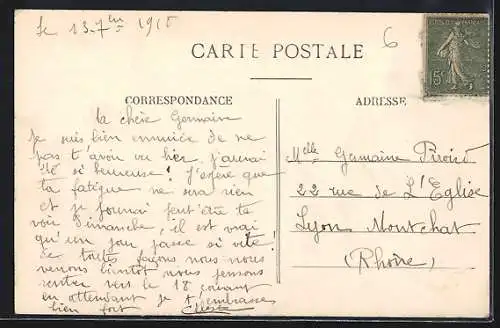 le 13 7bre 1915
6
CARTE POSTALE
15c
CORRESPONDANCE
ADRESSE
la chère Germaine
Je suis bien ennuiée de ne
pas t'avoir vu hier j'aurai
été si heureuse! j'espère que
ta fatigue ne sera rien
et je pourrai peut'être te
voir Dimanche, il est vrai
qu'un jour passe si vite!
de toutes façons nous nous
verrons bientôt nous pensons
rentrer vers le 18 courant
en attendant je t'embrasse
bien fort
Melle Germaine
22 rue de L'Eglise
Lyon Montchat
(Rhône)